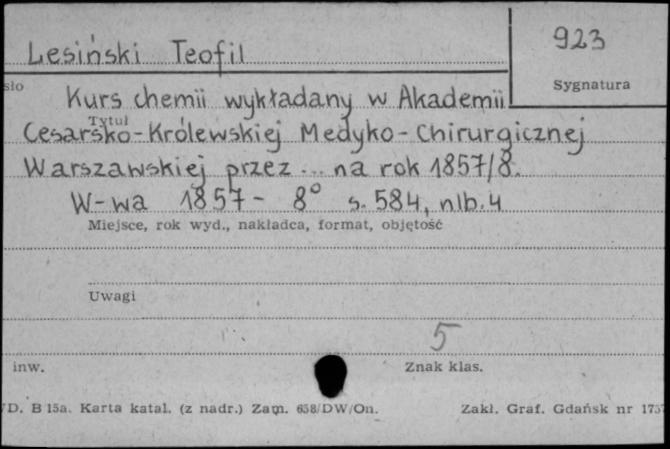 923
Lesiński Teofil
Sygnatura
sło
Kurs chemii wykładany w Akademii
Tytuł
Cesarsko-Królewskiej Medyko-Chirurgicznej
Warszawskiej przez ... na rok 1857/8.
W-wa 1857- 8° s. 584, nlb. 4
Miejsce, rok wyd., nakładca, format, objętość
Uwagi
5
inw.
Znak klas.
D. B 15a. Karta katal. (z nadr.) Zam. 658/DW/On.
Zakł. Graf. Gdańsk nr 173